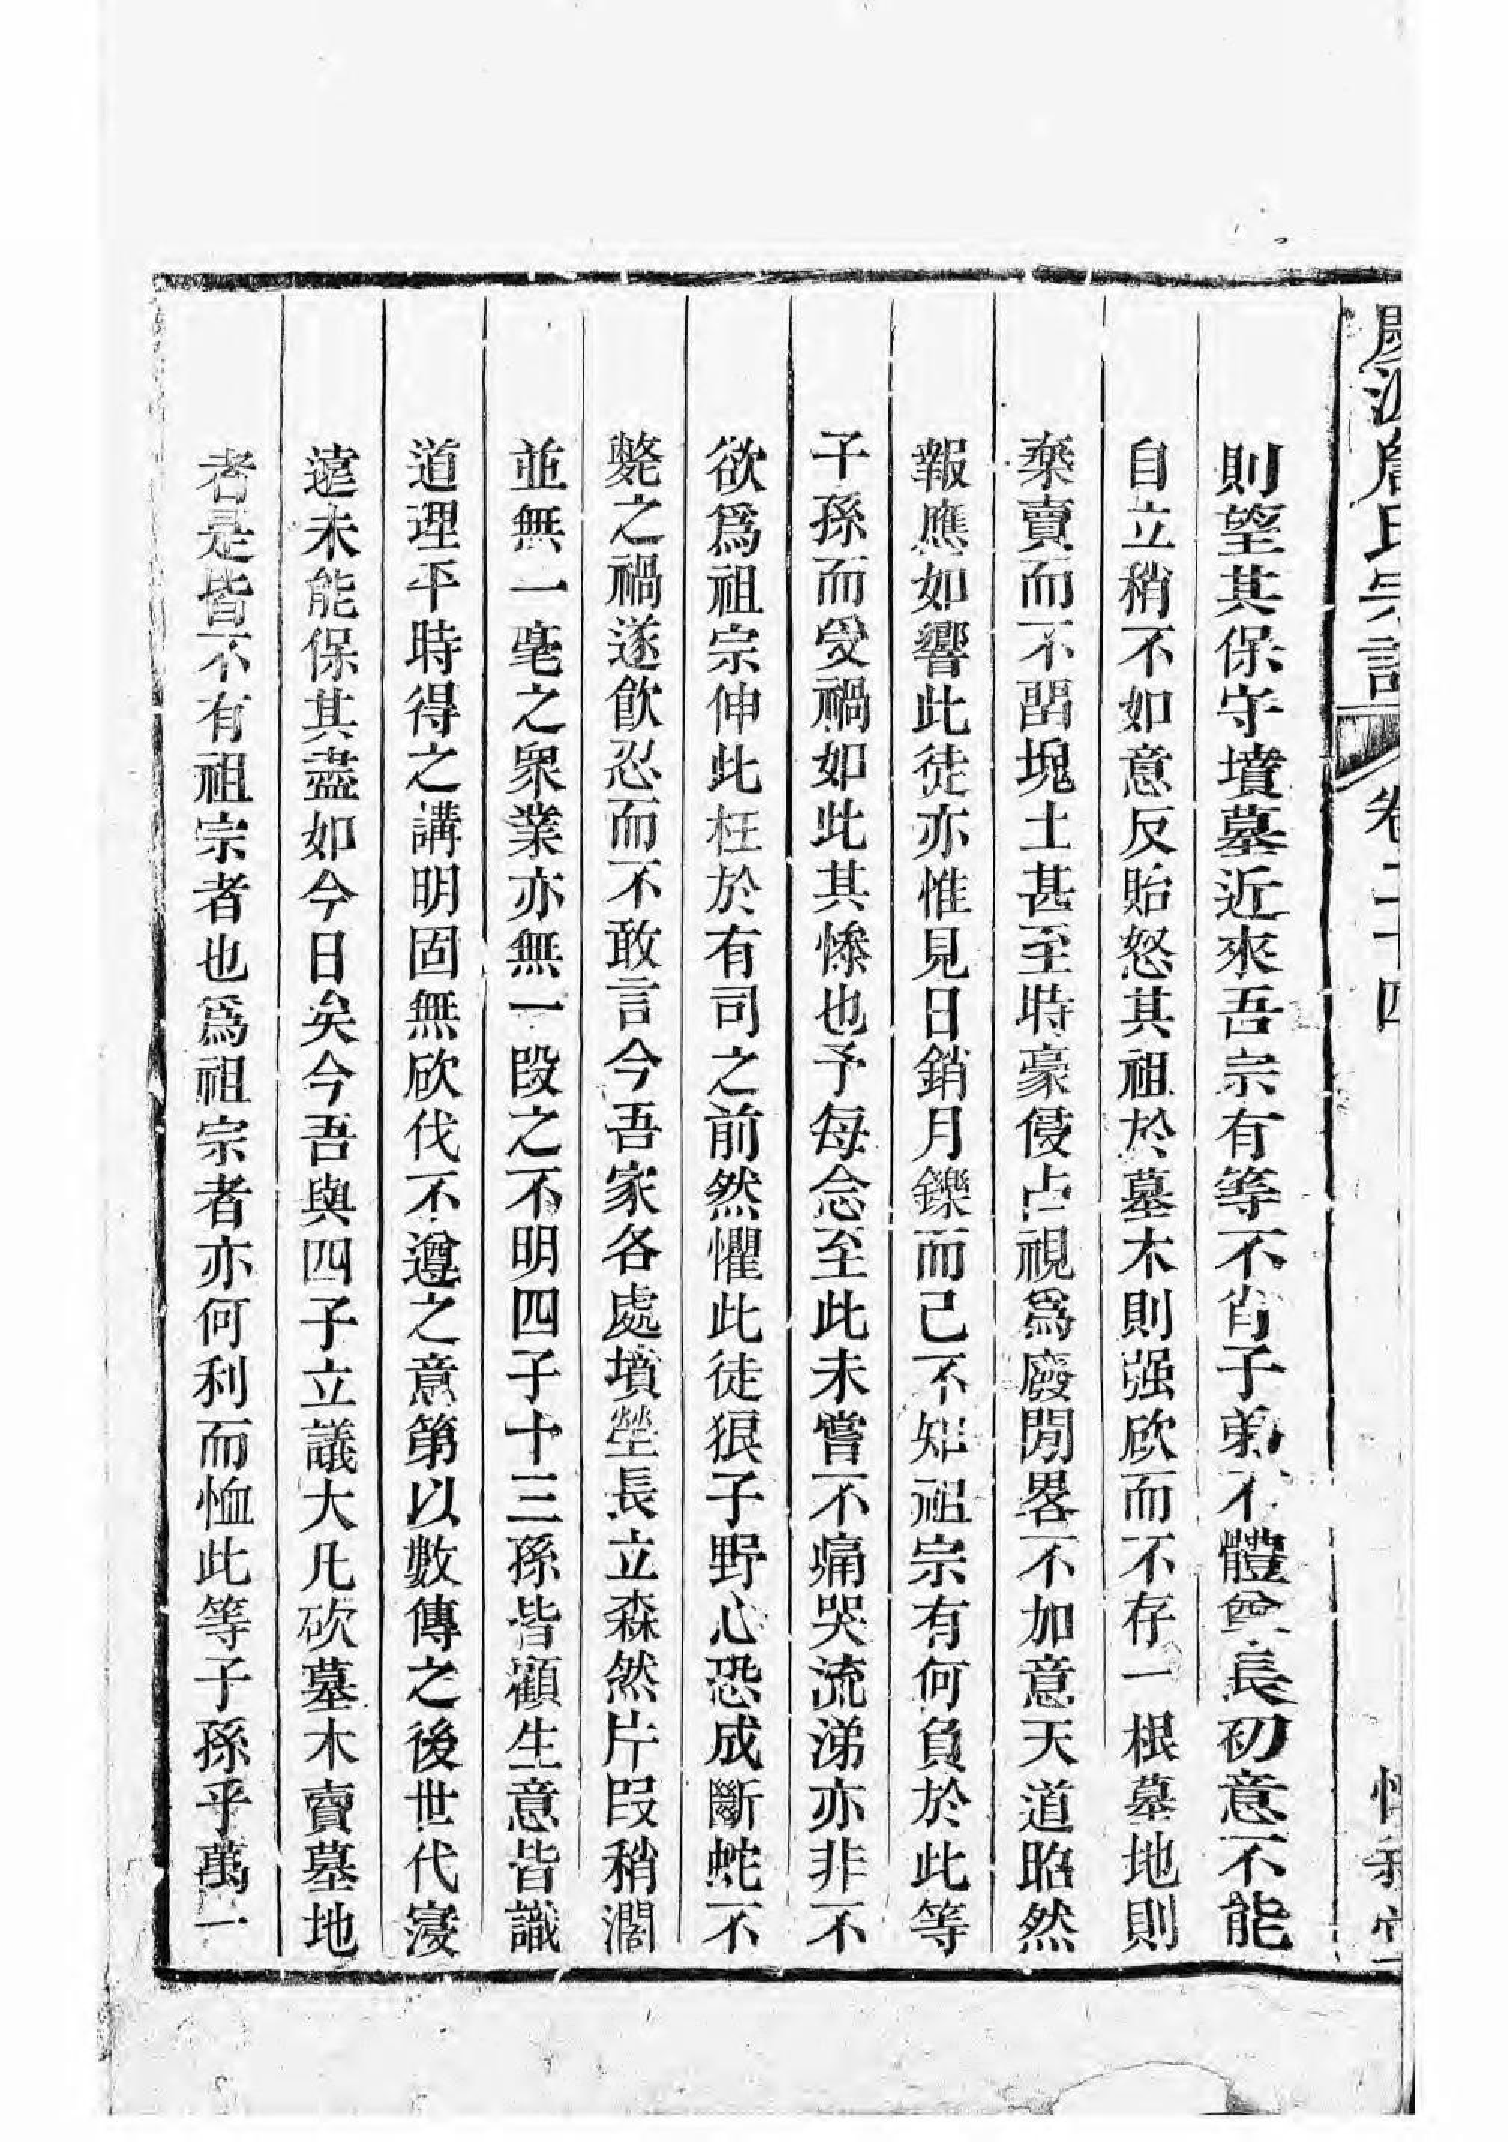 慶源詹氏宗譜 卷二十四
則望其保守墳墓近來吾宗有等不肖子弟不體尊長初意不能
自立稍不如意反貽怒其祖於墓木則强砍而不存一根墓地則
棄賣而不畱塊土甚至時豪侵占視爲廢閒畧不加意天道昭然
報應如響此徒亦惟見日銷月鑠而已不知祖宗有何負於此等
子孫而受禍如此其慘也予每念至此未嘗不痛哭流涕亦非不
欲爲祖宗伸此枉於有司之前然懼此徒狠子野心恐成斷蛇不
斃之禍遂飮忍而不敢言今吾家各處墳塋長立森然片段稍濶
並無一毫之眾業亦無一段之不明四子十三孫皆顧生意皆識
道理平時得之講明固無砍伐不遵之意第以數傳之後世代寖
遠未能保其盡如今日矣今吾與四子立議大凡砍墓木賣墓地
者是皆不有祖宗者也爲祖宗者亦何利而恤此等子孫乎萬一